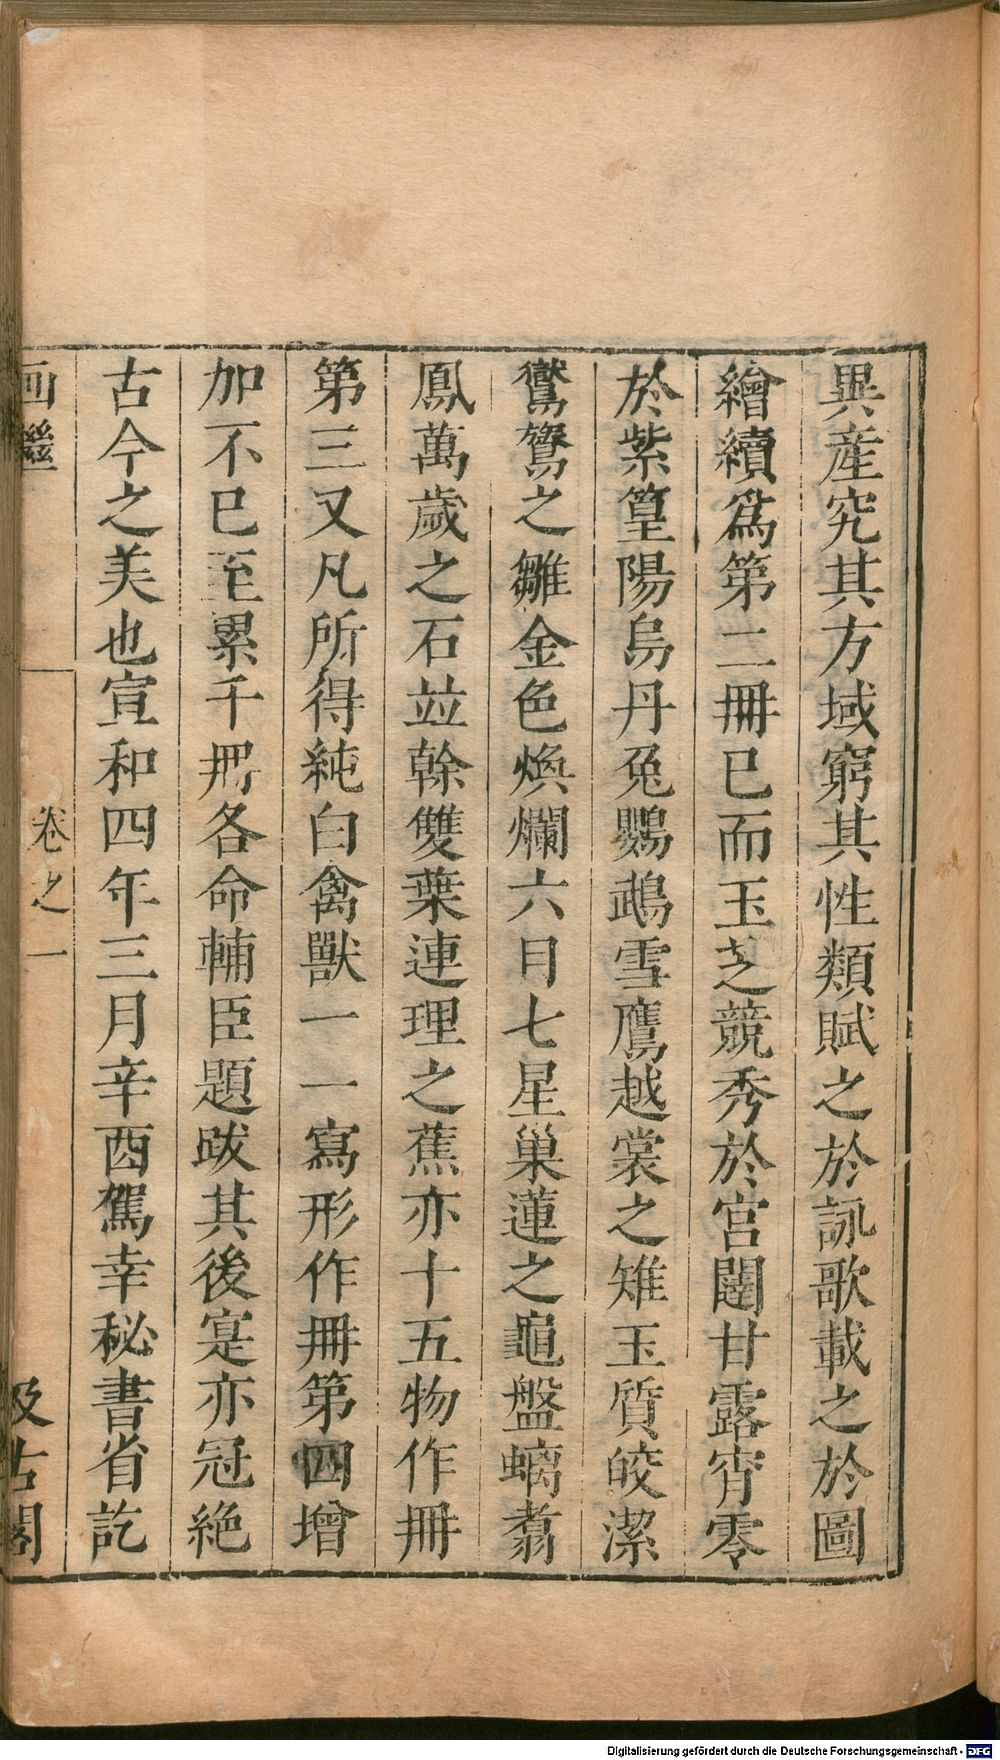 異産究其方域窮其性類賦之於詠歌載之於圖
繪續爲第二冊已而玉芝競秀於宫闥甘露宵零
於紫篁陽烏丹兔鸚鵡雪鷹越裳之雉玉質皎潔
鸑鷟之雛金色煥爛六目七星巢蓮之龜盤螭翥
鳳萬歲之石並幹雙葉連理之蕉亦十五物作冊
第三又凡所得純白禽獸一一寫形作冊第四增
加不已至累千冊各命輔臣題跋其後寔亦冠絶
古今之美也宣和四年三月辛酉駕幸秘書省訖
画繼
卷之一
汲古閣
Digitalisierung gefördert durch die Deutsche Forschungsgemeinschaft - DFG